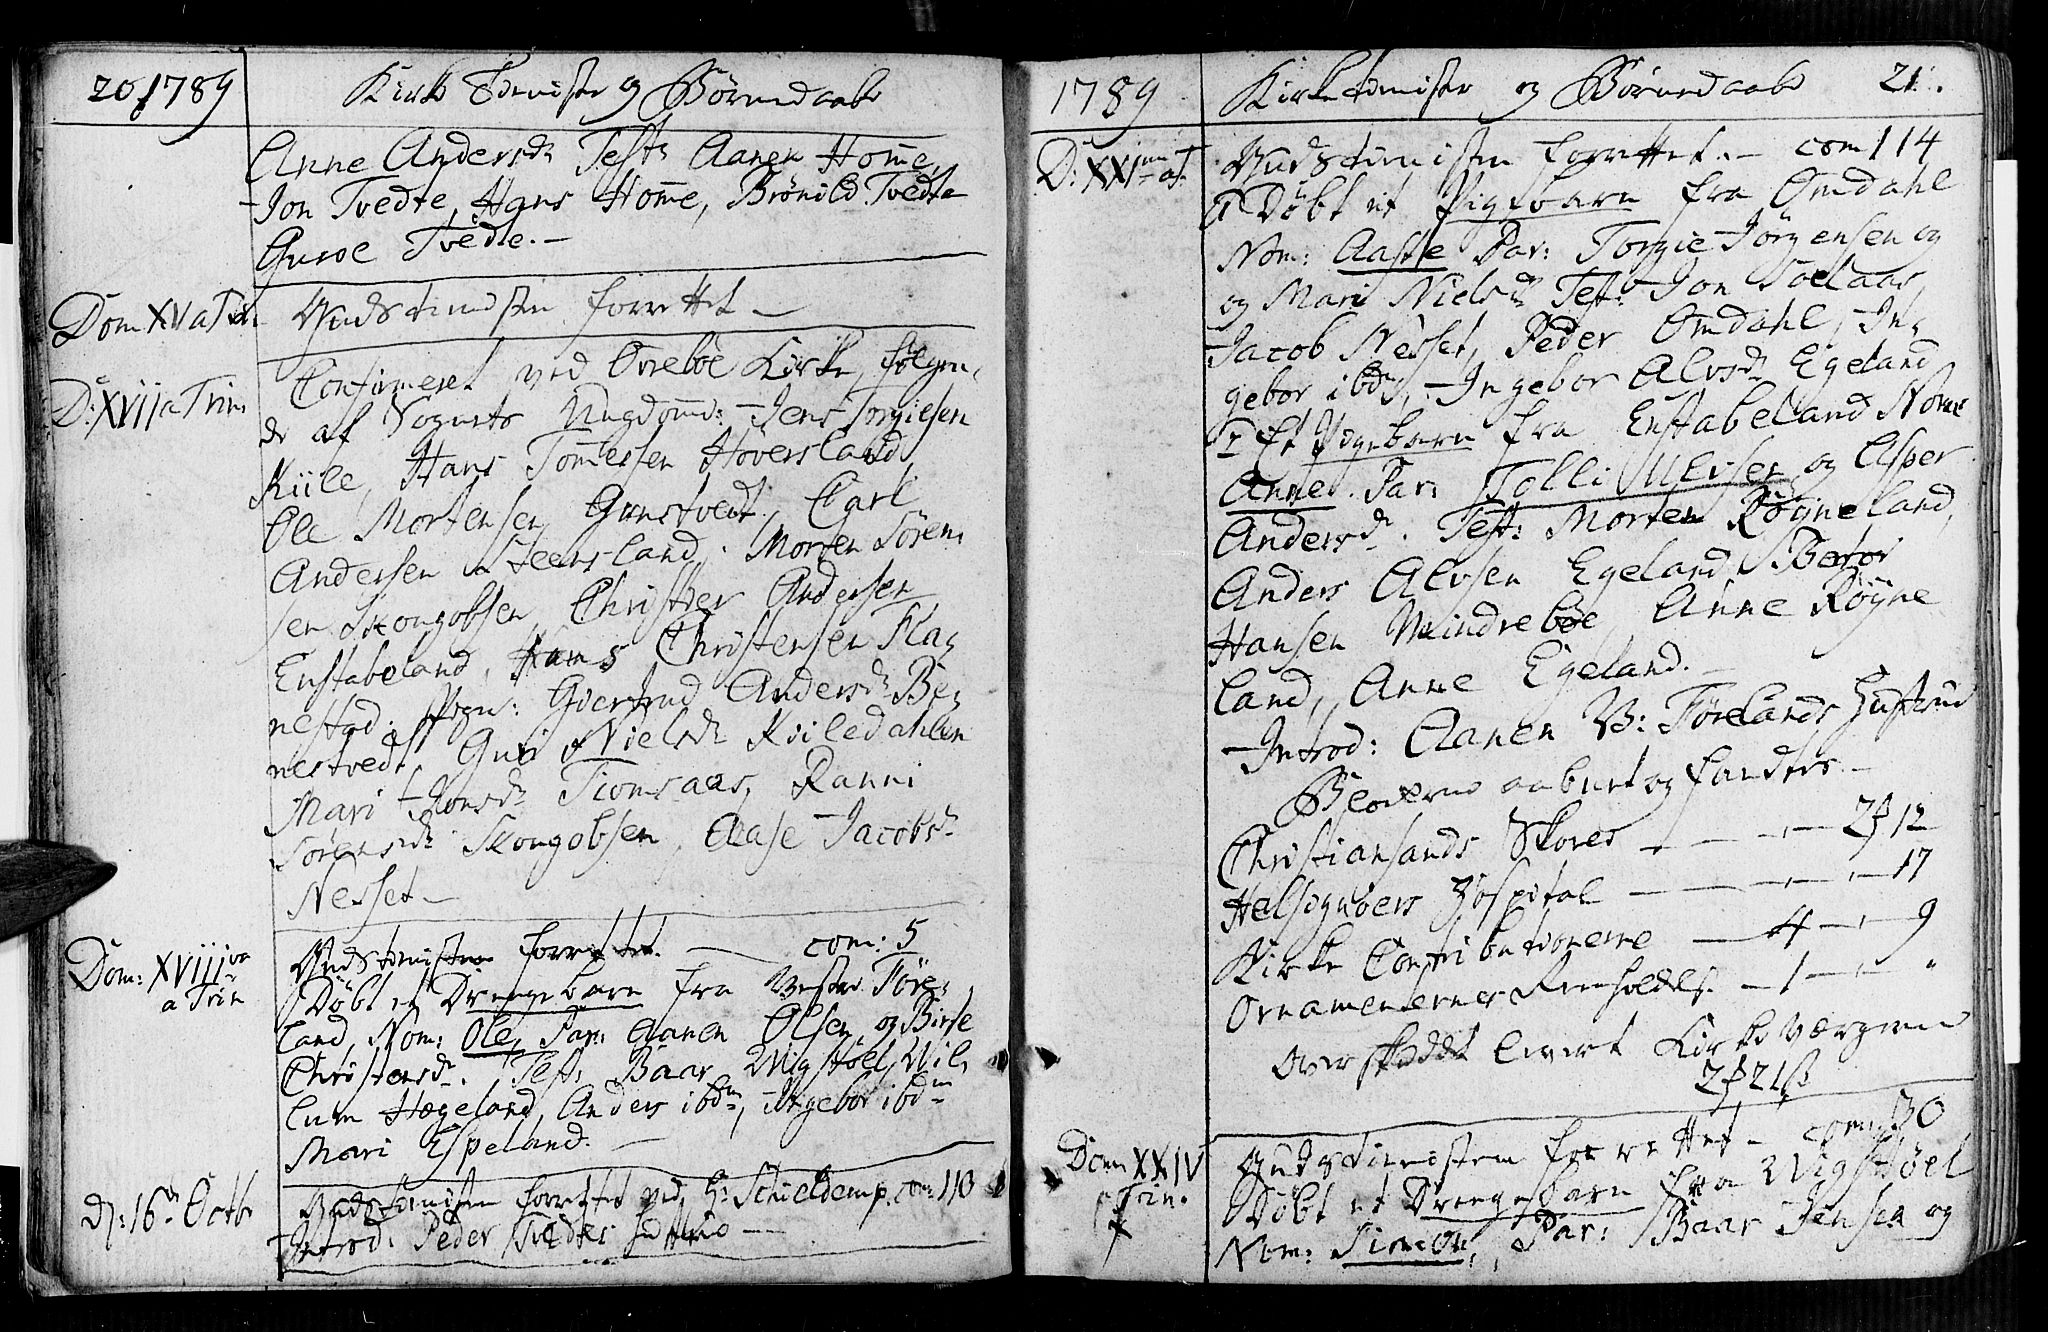 20 1789 Kirke Tieniste og Børnedaabe
Anne Andersdr Test: Aanen Homme,
Jon Tvedte, Hans Homme, Brønild Tvedte
Guroe Tvedte.-
Dom XV a Trin. Gudstienesten forrettet -
D: XVII a Trin. Confirmeret ved Øvrebøe Kirke, følgen,
de af Sognets Ungdomme: Jens Torgiesen
Kiile, Hans Tomessen Høversland
Ole Mortensen Gunstvedt, Carl
Andersen Steensland, Morten Søren,
sen Skougobsen, Christen Andersen
Enstabeland, Hans Christensen Fla,
nestad. Piger: Giertrud Andersdr Be,
nestvedt, Guri Nielsdr Kiiledahlen
Mari Jonsdr Tiomsaas, Ranni
Sørensdr Skougobsen, Aase Jacobsdr
Nesset -
Dom: XVIII va a Trin Gudstienisten forrettet. - com: 5
Døbt et Drengebarn fra Vestre Føre,
land, Nom: Ole, Par: Aanen Olsen og Birte
Christensdr. Test: Baar Wigstøel, Wil,
lum Hægeland, Anders ibdm, Ingebor ibdm
Mari Espeland. -
D: 16de Octbr Gudstienisten forrettet ved Hr Schieldemp. com: 110
Introd: Peder Tvedtes Hustrue -
1789 Kirketieniste og Børnedaabe 21.
D: XXI ma a T. Gudstienisten forrettet. - com 114
1 Døbt et Pigebarn fra Omdahl
Nom: Aasse Par: Torgie Jørgensen og
og Mari Nielsdr Test: Jon Toelaas,
Jacob Nesset, Peder Omdahl, In,
gebor ibdm, Ingebor Alvsdr Egeland
2 Et Pigebarn fra Enstabeland Nom:
Anne. Par: Tolli Ulvsen og Asper
Andersdr. Test: Morten Røyneland,
Anders Alvsen Egeland, Bertor
Hansen Mindrebøe, Anne Røyne
land, Anne Egeland. -
Introd: Aanen V: Førelands Hustrue
Blokkerne aabnet og fandtes -
Christiansands Skoles - - - 2 12
Helsingøers Hospital - - - 17
Kirke Contributionerne - 4 - 9
Ornamenternes Renholdelse - 1 - "
Overskuddet levert Kirke Værgerne
2 21ß
Dom XXIV a Trin. Gudstienisten forrettet - com: 30
Døbt et Drengebarn fra Wigstøel
Nom: Simon, Par: Baar Jensen og